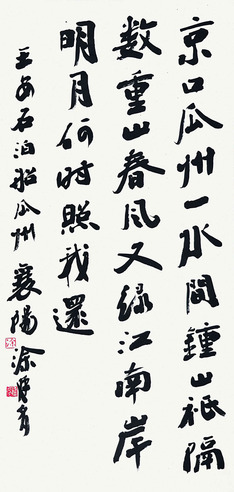 京口瓜州一水間鍾山衹隔
数重山春风又綠江南岸
明月何时照我還
王安石泊船瓜州 襄陽涂